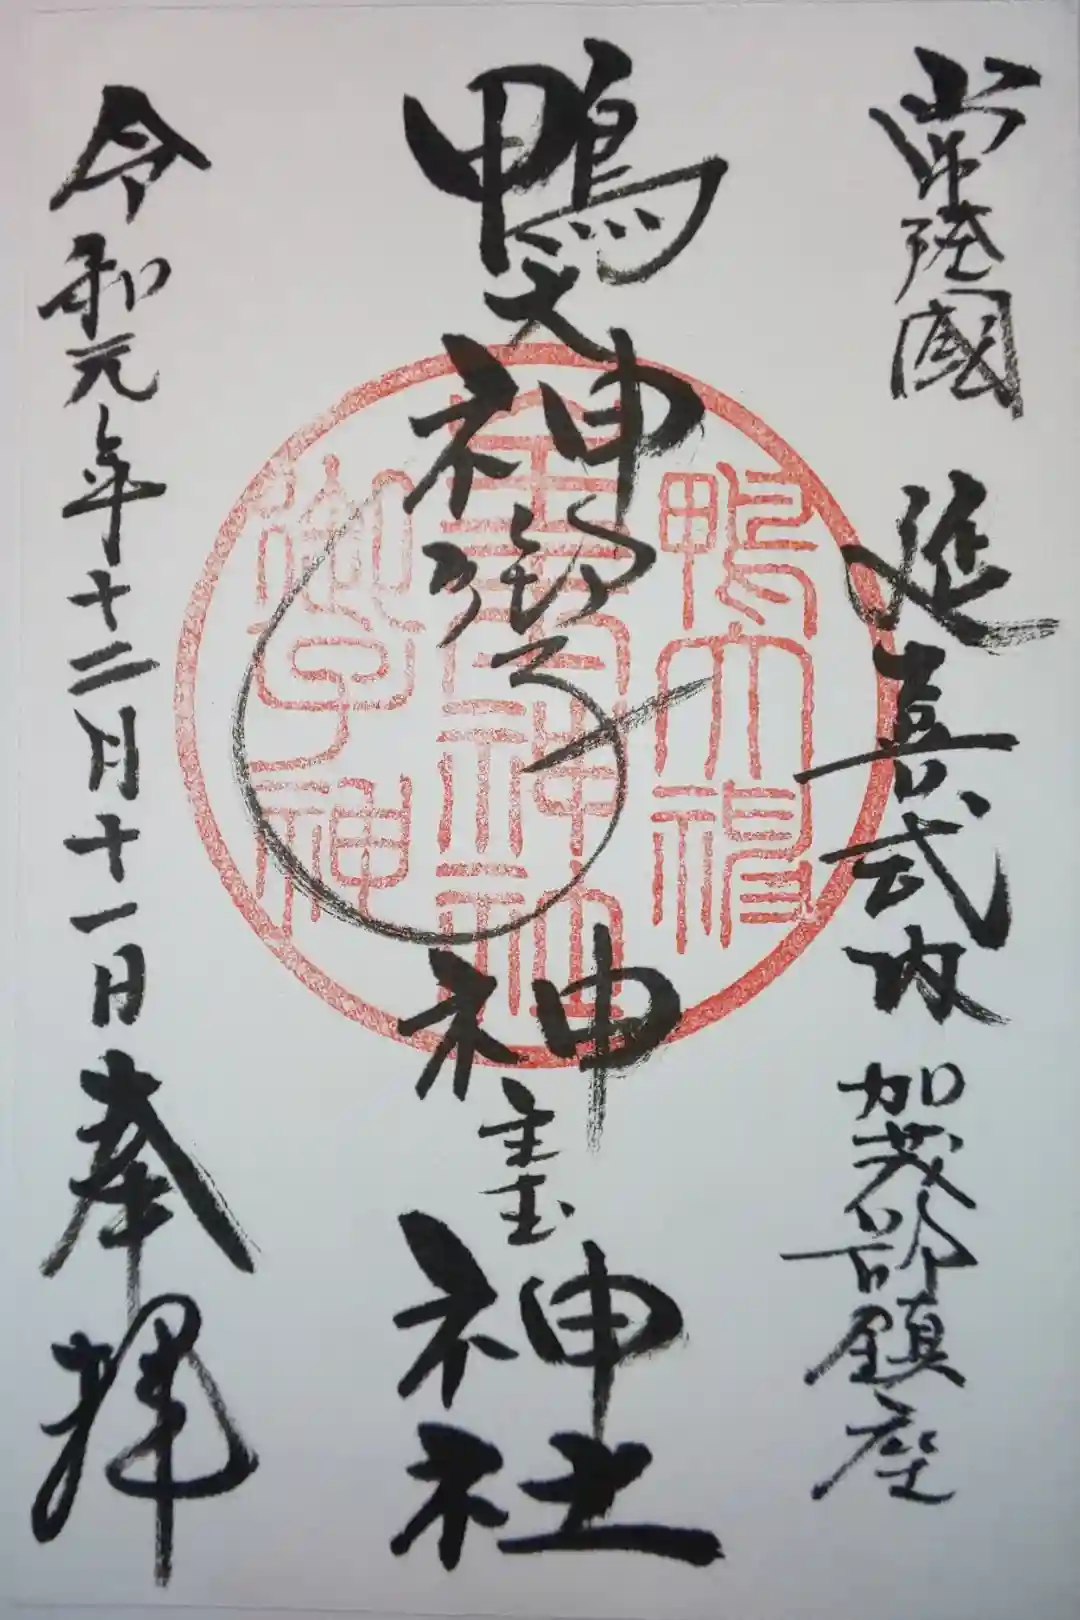 常陸國 延喜式内 加茂部鎮座
鴨大神御子神主玉神社
令和元年十二月十一日奉拝
鴨大神
主玉神社
御子神